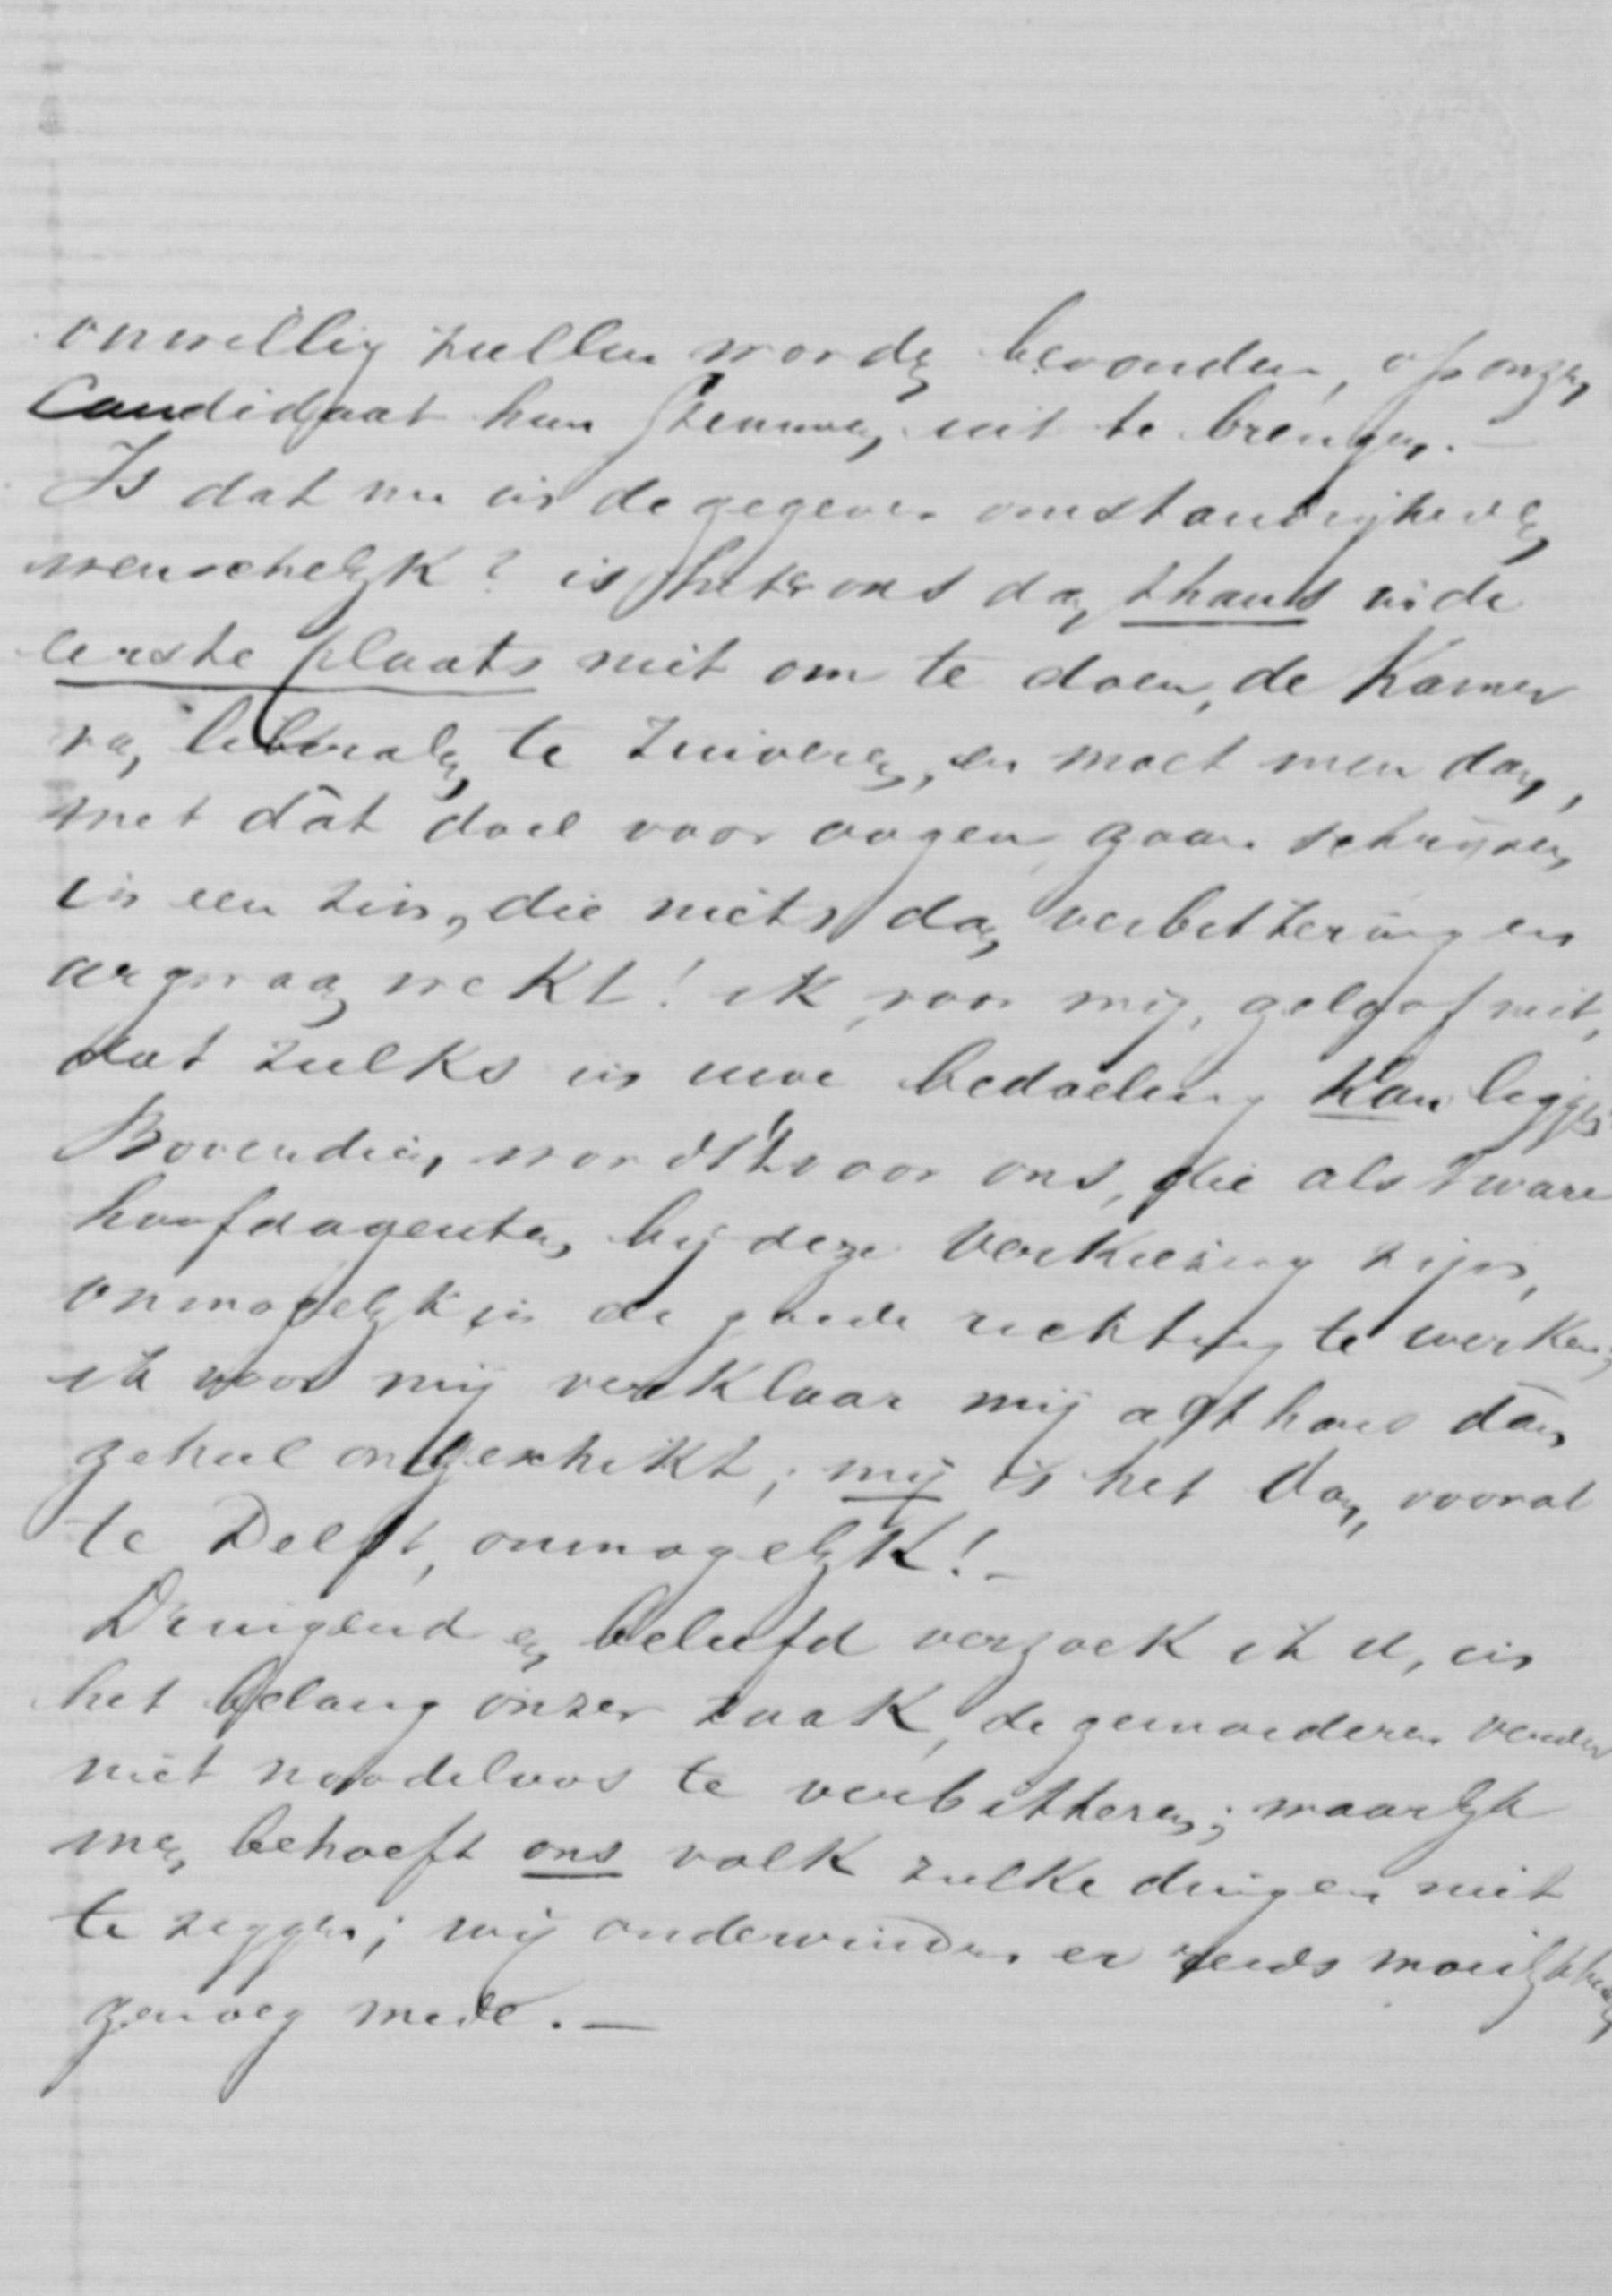 onwillig zullen worden bevonden, op onzen
Candidaat hun stemmen uit te brengen. —
Is dat nu in de gegeven omstandigheden
wenschelijk? is het er ons dan thans in de
eerste plaats niet om te doen, de Kamer
van liberalen te zuiveren, en moet men dan,
met dàt doel voor oogen, gaan schrijven
in een zin, die niets dan verbittering en
argwaan wekt! ik, voor mij, geloof niet,
dat zulks in uwe bedoeling kan liggen
Bovendien wordt 't voor ons, die als 't ware
hoofdagenten bij deze verkiezing zijn,
onmogelijk in de goede richting te werken;
ik voor mij verklaar mij althans dan
geheel ongeschikt; mij is het dan, vooral
te Delft, onmogelijk! —
Dringend en beleefd verzoek ik U, in
het belang onzer zaak, de gemoederen verder
niet noodeloos te verbitteren; waarlijk
men behoeft ons volk zulke dingen niet
te zeggen; wij ondervinden er reeds moeilijkheden
genoeg mede. —